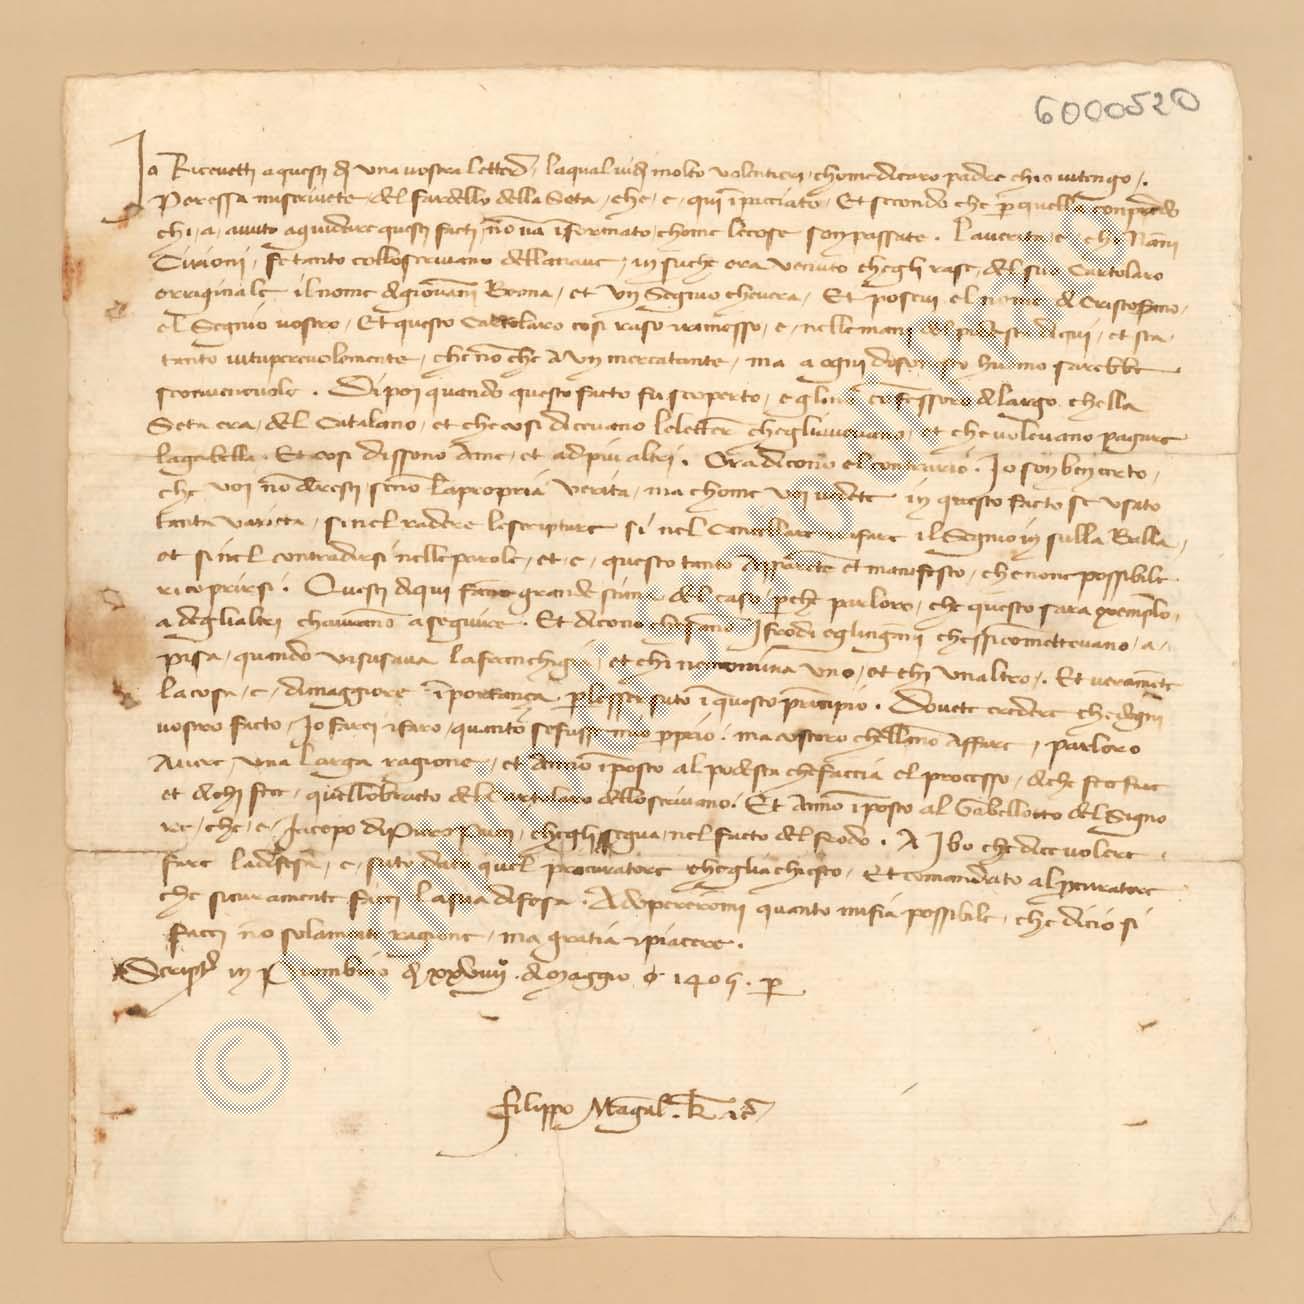 6000520
Io Ricevetti a questi dì una vostra lettera, la qual vidi molto volentieri, chome di caro padre ch'io vi tengo.
Per essa mi scrivete del fardello della Seta, che, e, qui impicciato, Et secondo che per quella comprendo
chi, a, auuto aguidare questi facti, non va informato, chome le cose son passate. La verita, e, che Nanni
Cirioni, fe tanto collo scrivano della nave, in su che era venuto ch'egli rase, del suo Cartolaro
origginale il nome di giovanni Borna, et un Segnio che v'era, Et posevi el nome di Cristofano,
el Segnio vostro, Et questo Cartolaro cosi raso, e, nelle mani del podesta di qui, et sta
tanto vituperevolemente, che non che a un mercatante, ma a ogni huomo sarebbe
sconvenevole. Di poi quando questo facto fu scoperto, eglino confessoro di largo che lla
Seta era, del Catalano, et che cosi dicevano le lettere ch'egli avevano, et che volevano pagare
la gabella. Et cosi dissono a me, et ad piu altri. Ora dicono el contrario. Io son ben certo,
che voi non direste, se non la propria verita, ma chome voi vedete in questo facto s'e usato
tanta varieta, si nel radere le scripture si nel cancellare rifare il Segnio in sulla Balla,
et si nel contradirsi nelle parole, et, e, questo tanto apparente et manifesto, che non e possibile
ricoprirsi. Questi di qui fanno grande stima del caso, perche par loro, che questo sara exemplo,
a degli altri ch'avranno a seguire. Et dicono frodi e gl'inganni che ssi comettevano, a,
pisa, quando vi s'usava la franchigia, et chi ne nomina uno, et chi un altro. Et veramente
la cosa, e, di maggiore importanza, per l'esser suto in questo principio. Dovete credere che d'ogni
vostro facto, Io farei et faro, quanto se fusse mio proprio. ma costoro che ll'anno Affare, par loro
Avere una larga ragione, et anno imposto al podesta che faccia el processo, di che fece fare
et di chi fece, quello del Cartolaro dello scrivano. Et anno imposto al Gabellotto del Signo
re, che, e, Iacopo di Piero, ch'egli segua, nel facto del frodo. A Ibo che dice volere
fare la difesa, e, suto dato quel procuratore ch'egli a chiesto, Et comandato al procuratore
che sicuramente facci la sua difesa. Adoperrommi quanto mi fia possibile, che di cio si
facci no solamente ragione, ma gratia et piacere.
Script in Piombino di xxviiij di Maggio 1405. per
Filippo Magal.